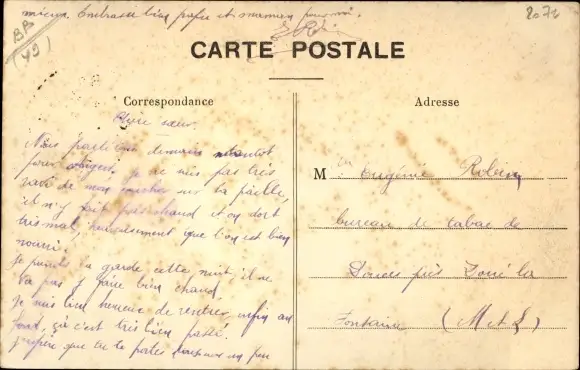 mieux. Embrasse bien et maman pour moi.
BB
(49)
2076
CARTE POSTALE
Correspondance
Chère sœur.
Nous partirons demain
pour je ne suis pas très
de me coucher sur la paille,
il n'y fait pas chaud et on dort
très mal, heureusement que l'on est bien
nourri.
Je prends la garde cette nuit, il ne
va pas y faire bien chaud,
Je suis bien de rentrer, enfin au
fond, ça c'est très bien passé.
J'espère que tu te portes toujours un peu
Adresse
M Eugénie
bureau de tabac de
Douces près Doué la
Fontaine (M et L)